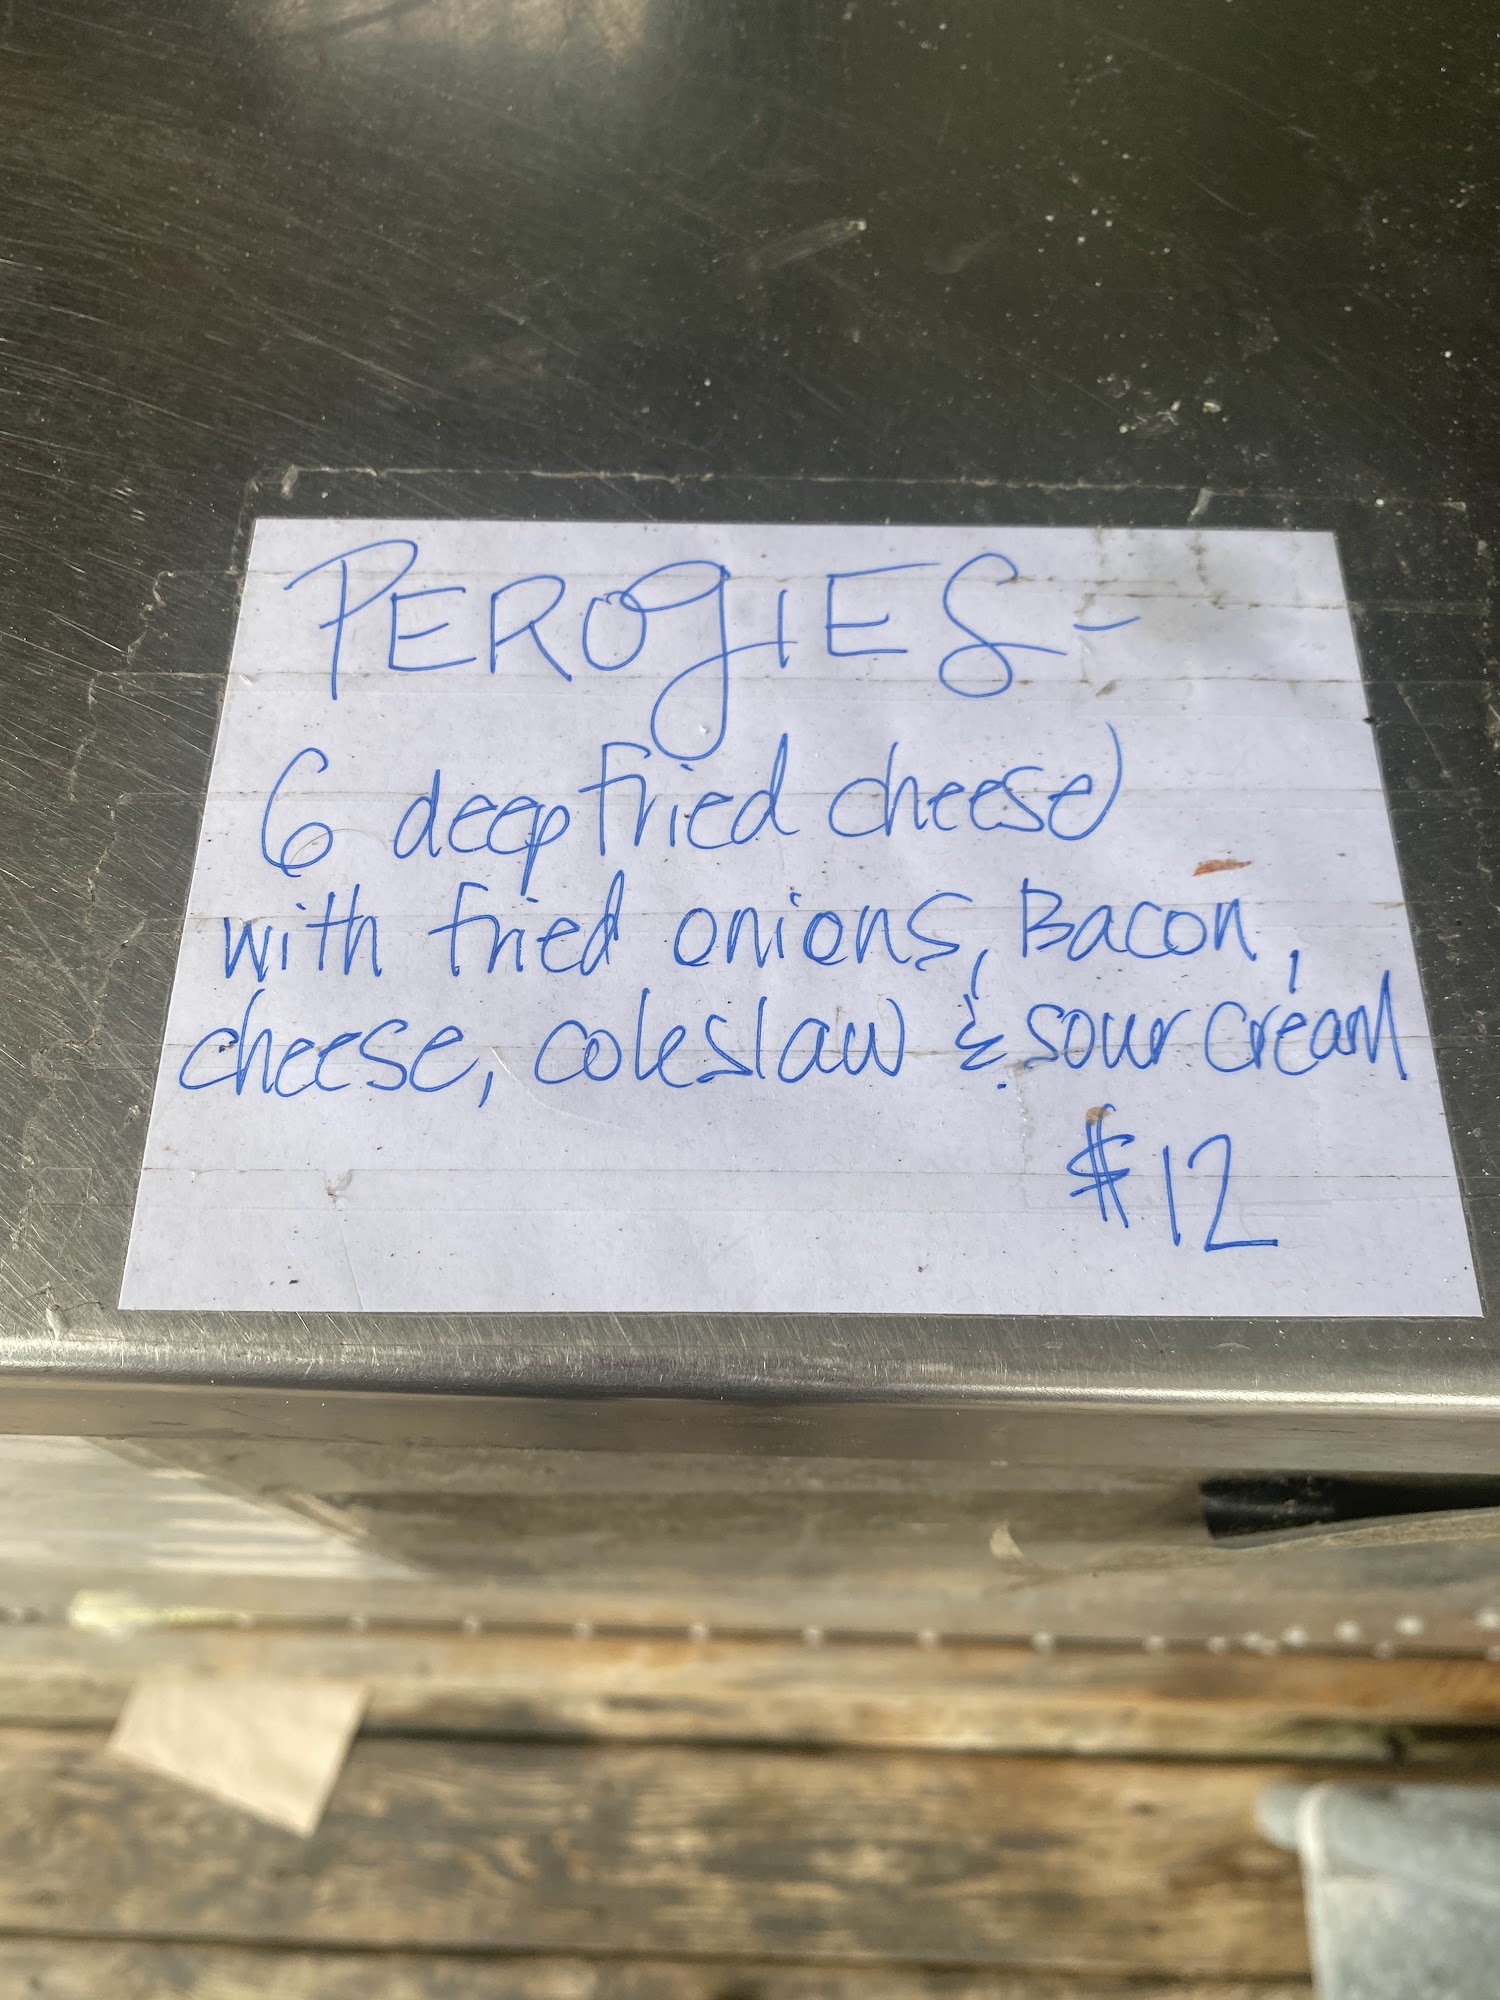 PEROGIES -
6 deep fried cheese
with fried onions, Bacon,
cheese, coleslaw & sour cream
$12